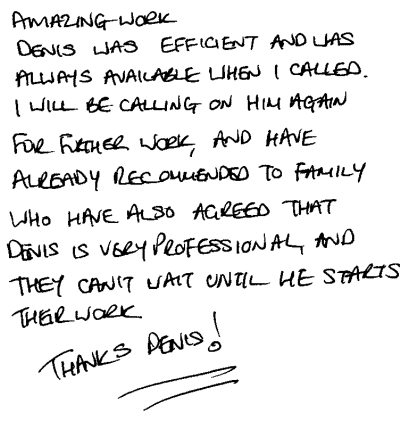 AMAZING WORK
DENIS WAS EFFICIENT AND WAS
ALWAYS AVAILABLE WHEN I CALLED.
I WILL BE CALLING ON HIM AGAIN
FOR FURTHER WORK, AND HAVE
ALREADY RECOMMENDED TO FAMILY
WHO HAVE ALSO AGREED THAT
DENIS IS VERY PROFESSIONAL, AND
THEY CAN'T WAIT UNTIL HE STARTS
THEIR WORK
THANKS DENIS!